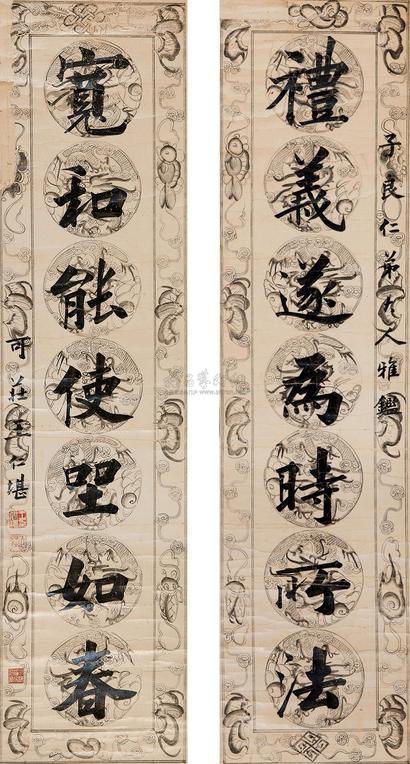 子良仁弟大人雅鑑
禮義遂為時所法
寬和能使望如春
可莊王仁堪